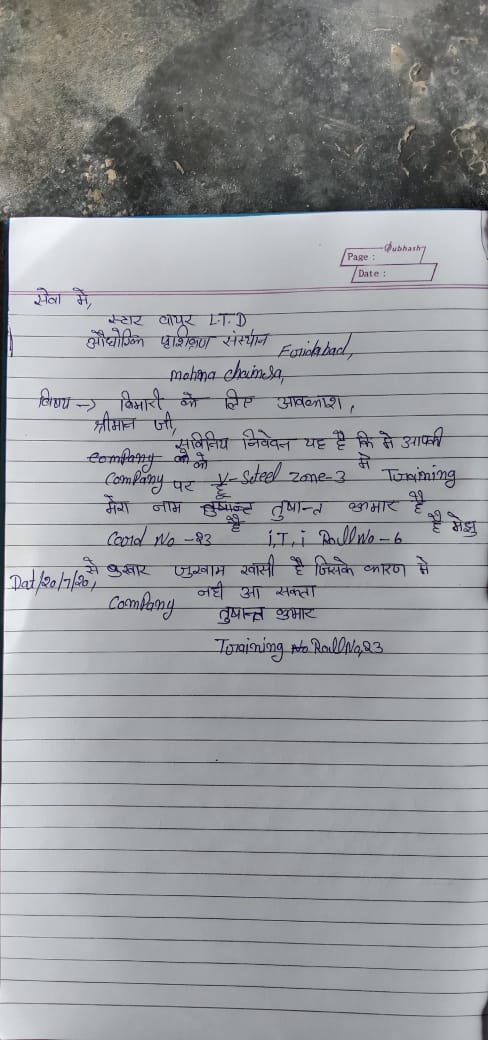 Subhash
Page :
Date :
सेवा में,
स्टार वायर L.T.D
औघोगिक प्रशिक्षण संस्थान Faridabad,
mohna chainsa,
विषय -> विमारी के लिए आवकाश,
श्रीमान जी,
सुविनिय निवेदन यह है कि मे आपकी
company के के
Company पर हूँ V-Steel zone-3 मे Training
मेरा नाम तुषान्त तुषान्त कुमार है
Card No -23 है i,T,i Roll No - 6 है मेझु
से बुखार जुखाम खांसी है जिसके कारण मे
Dat/20/7/20,
Company नही आ सकता
तुषान्त कुमार
Training No Roll No,23